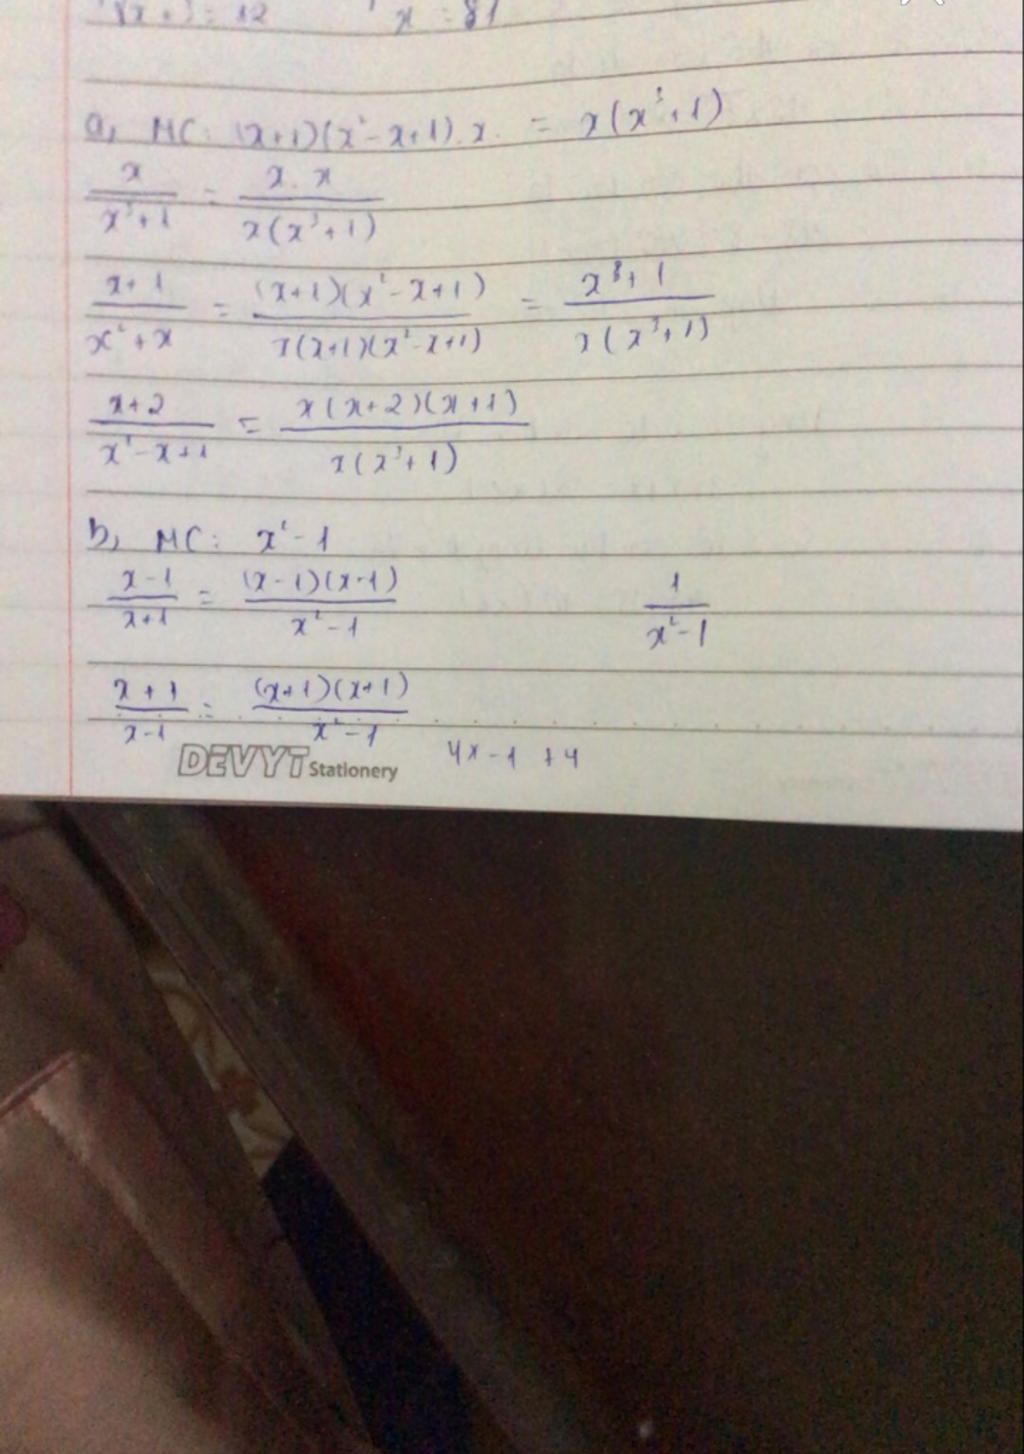 = 12 x = 81
a, MC: (x+1)(x²-x+1).x. = x(x³+1)
x/(x³+1) = x.x/(x(x³+1))
(x+1)/(x²+x) = (x+1)(x²-x+1)/(x(x+1)(x²-x+1)) = (x³+1)/(x(x³+1))
(x+2)/(x²-x+1) = x(x+2)(x+1)/(x(x³+1))
b, MC: x²-1
(x-1)/(x+1) = (x-1)(x-1)/(x²-1) 1/(x²-1)
(x+1)/(x-1) = (x+1)(x+1)/(x²-1)
DEVYT Stationery 4x-1 +4